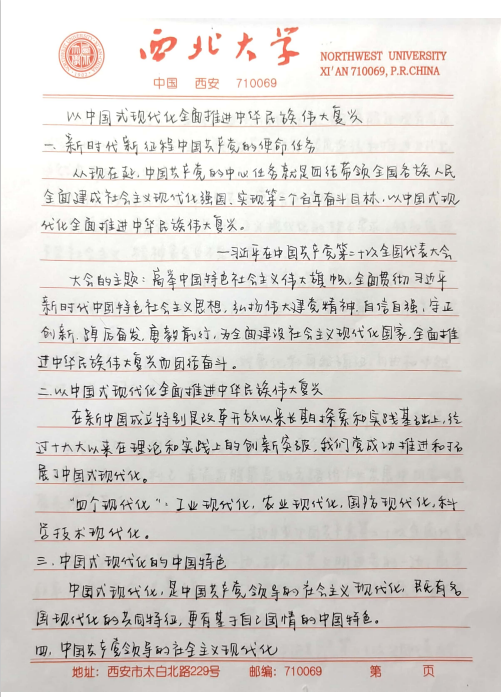 西北大学
NORTHWEST UNIVERSITY
中国 西安 710069
XI'AN 710069, P.R.CHINA
以中国式现代化全面推进中华民族伟大复兴
一、新时代新征程中国共产党的使命任务
从现在起,中国共产党的中心任务就是团结带领全国各族人民
全面建成社会主义现代化强国、实现第二个百年奋斗目标,以中国式现
代化全面推进中华民族伟大复兴。
—习近平在中国共产党第二十次全国代表大会
大会的主题:高举中国特色社会主义伟大旗帜,全面贯彻习近平
新时代中国特色社会主义思想,弘扬伟大建党精神,自信自强,守正
创新,踔厉奋发,勇毅前行,为全面建设社会主义现代化国家,全面推
进中华民族伟大复兴而团结奋斗。
二、以中国式现代化全面推进中华民族伟大复兴
在新中国成立特别是改革开放以来长期探索和实践基础上,经
过十九大以来在理论和实践上的创新突破,我们党成功推进和拓
展了中国式现代化。
"四个现代化":工业现代化,农业现代化,国防现代化,科
学技术现代化。
三、中国式现代化的中国特色
中国式现代化,是中国共产党领导的社会主义现代化,既有各
国现代化的共同特征,更有基于自己国情的中国特色。
四、中国共产党领导的社会主义现代化
地址:西安市太白北路229号 邮编:710069 第 页